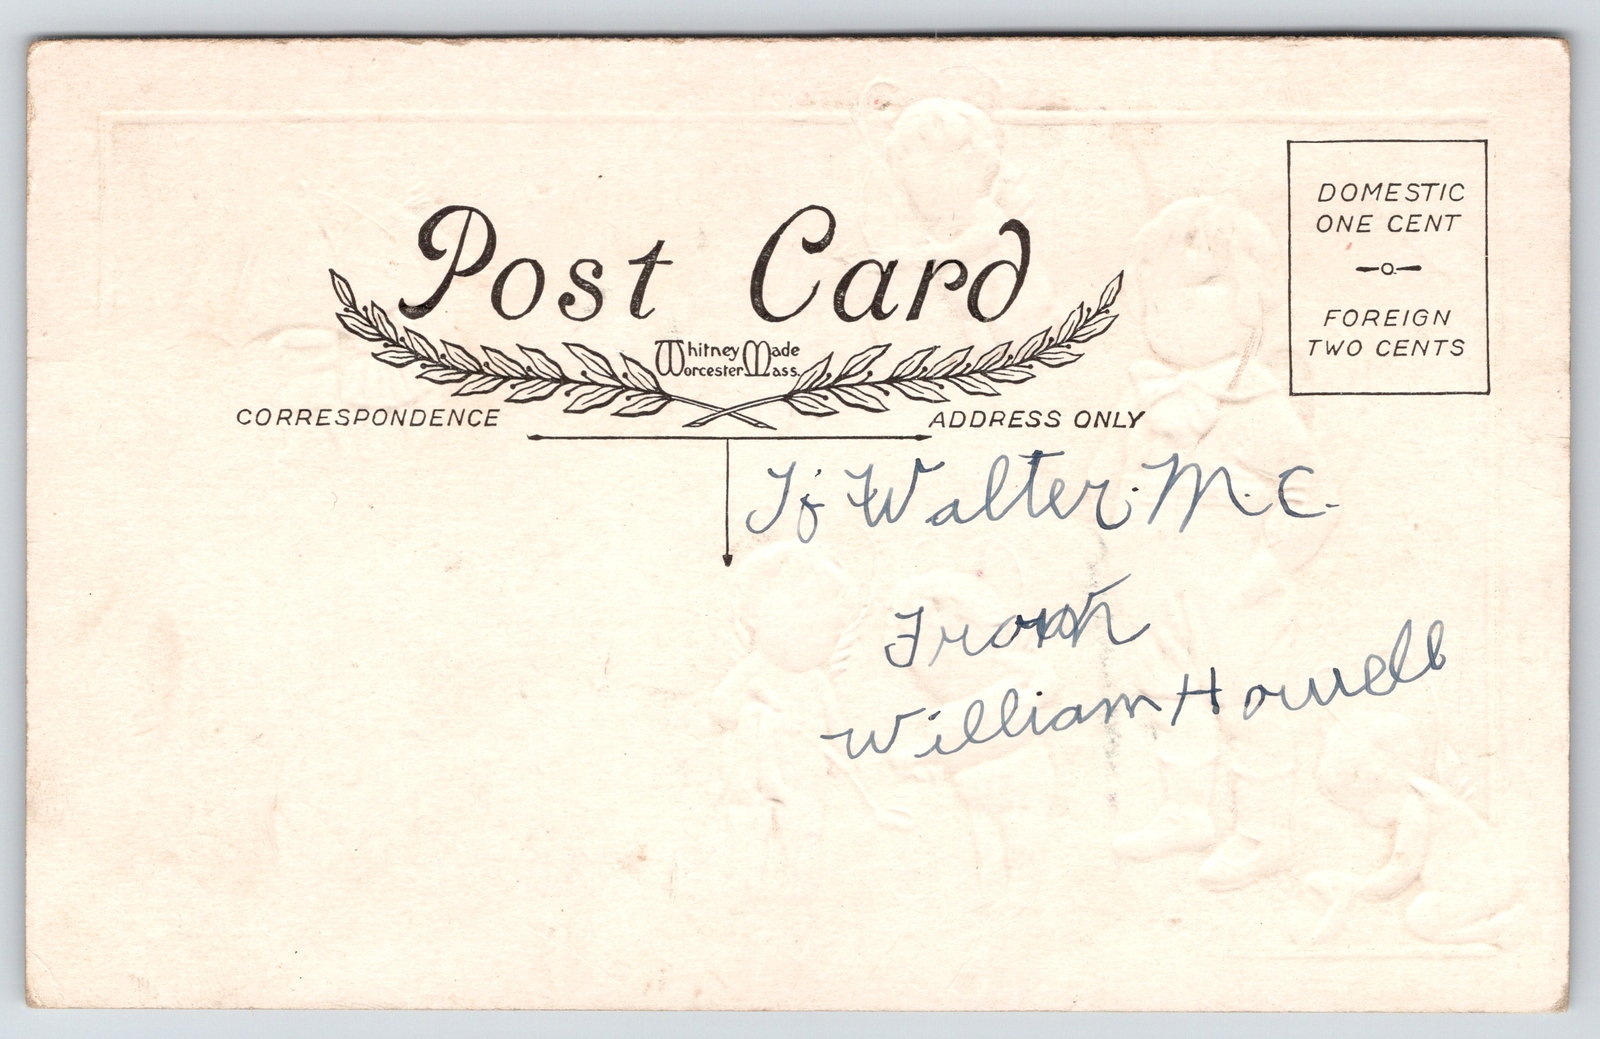 Post Card
Whitney Made
Worcester Mass.
DOMESTIC
ONE CENT
FOREIGN
TWO CENTS
CORRESPONDENCE
ADDRESS ONLY
Walter. M. C.
From
William Howell